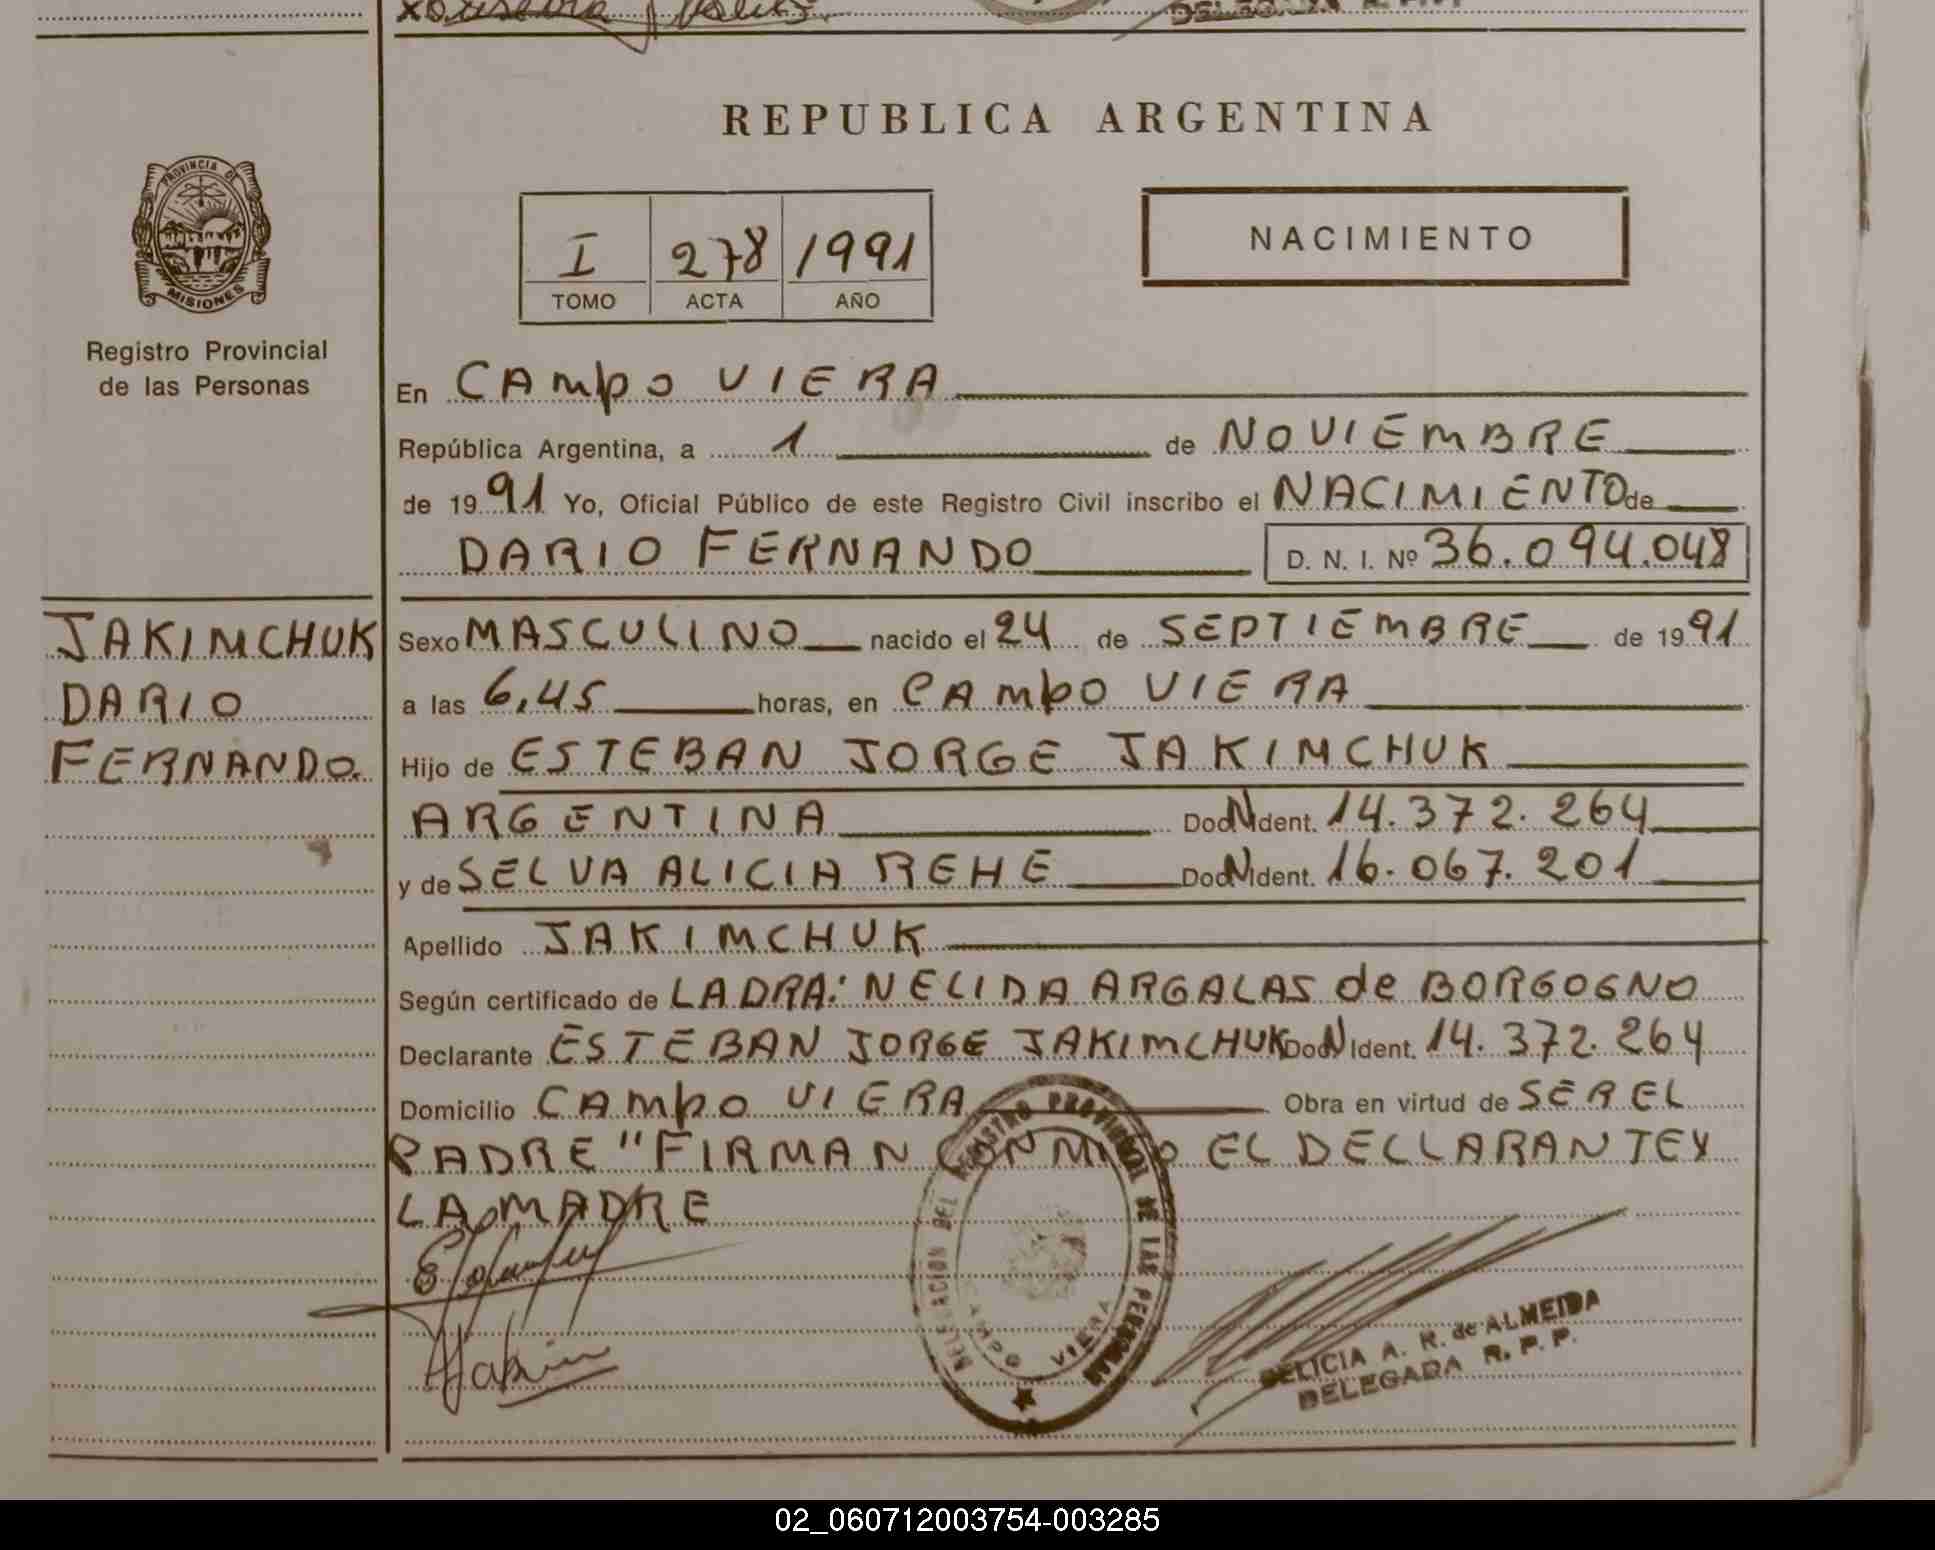 REPUBLICA ARGENTINA
PROVINCIA DE
MISIONES
Registro Provincial
de las Personas
I 278 1991
TOMO ACTA AÑO
NACIMIENTO
En CAMPO VIERA
República Argentina, a 1 de NOVIEMBRE
de 1991 Yo, Oficial Público de este Registro Civil inscribo el NACIMIENTO de
DARIO FERNANDO D. N. I. Nº 36.094.048
JAKIMCHUK
DARIO
FERNANDO.
Sexo MASCULINO nacido el 24 de SEPTIEMBRE de 1991
a las 6,45 horas, en CAMPO VIERA
Hijo de ESTEBAN JORGE JAKIMCHUK
ARGENTINA Doc N Ident. 14.372.264
y de SELVA ALICIA REHE Doc N Ident. 16.067.201
Apellido JAKIMCHUK
Según certificado de LADRA: NELIDA ARGALAS de BORGOGNO
Declarante ESTEBAN JORGE JAKIMCHUK Doc N Ident. 14.372.264
Domicilio CAMPO VIERA Obra en virtud de SER EL
PADRE "FIRMAN CONMIGO EL DECLARANTE Y
LA MADRE
DELEGACION DEL REGISTRO PROVINCIAL DE LAS PERSONAS
CAMPO VIERA
DELICIA A. R. de ALMEIDA
DELEGADA R. P. P.
02_060712003754-003285